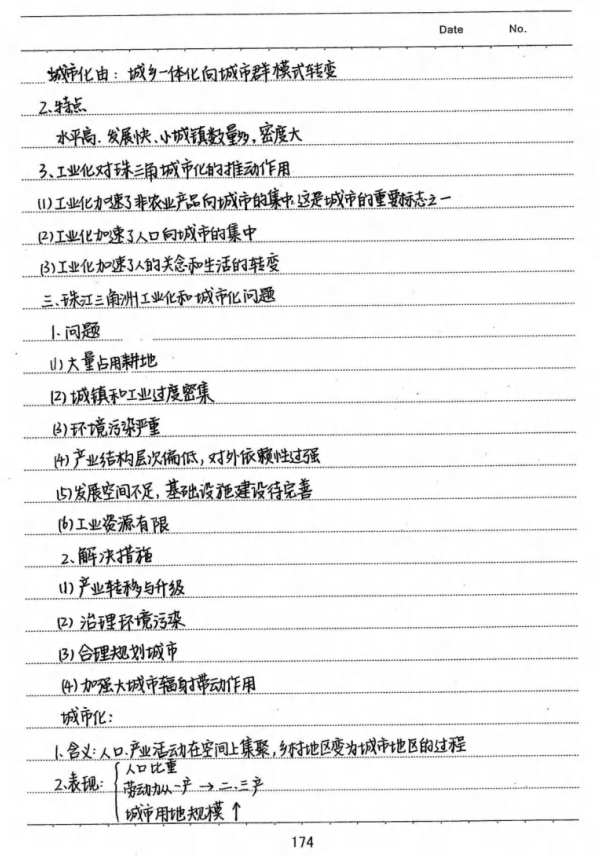 Date No.
城市化由：城乡一体化向城市群模式转变
2.特点
水平高、发展快、小城镇数量多，密度大
3、工业化对珠三角城市化的推动作用
(1)工业化加速了非农业产品向城市的集中.这是城市的重要标志之一
(2)工业化加速了人口向城市的集中
(3)工业化加速了人的关念和生活的转变
三、珠江三角洲工业化和城市化问题
1.问题
(1)大量占用耕地
(2)城镇和工业过度密集
(3)环境污染严重
(4)产业结构层次偏低，对外依赖性过强
(5)发展空间不足，基础设施建设待完善
(6)工业资源有限
2、解决措施
(1)产业转移与升级
(2)治理环境污染
(3)合理规划城市
(4)加强大城市辐射带动作用
城市化：
1.含义:人口.产业活动在空间上集聚,乡村地区变为城市地区的过程
2.表现:{人口比重
劳动力从一产→二.三产
城市用地规模↑
174